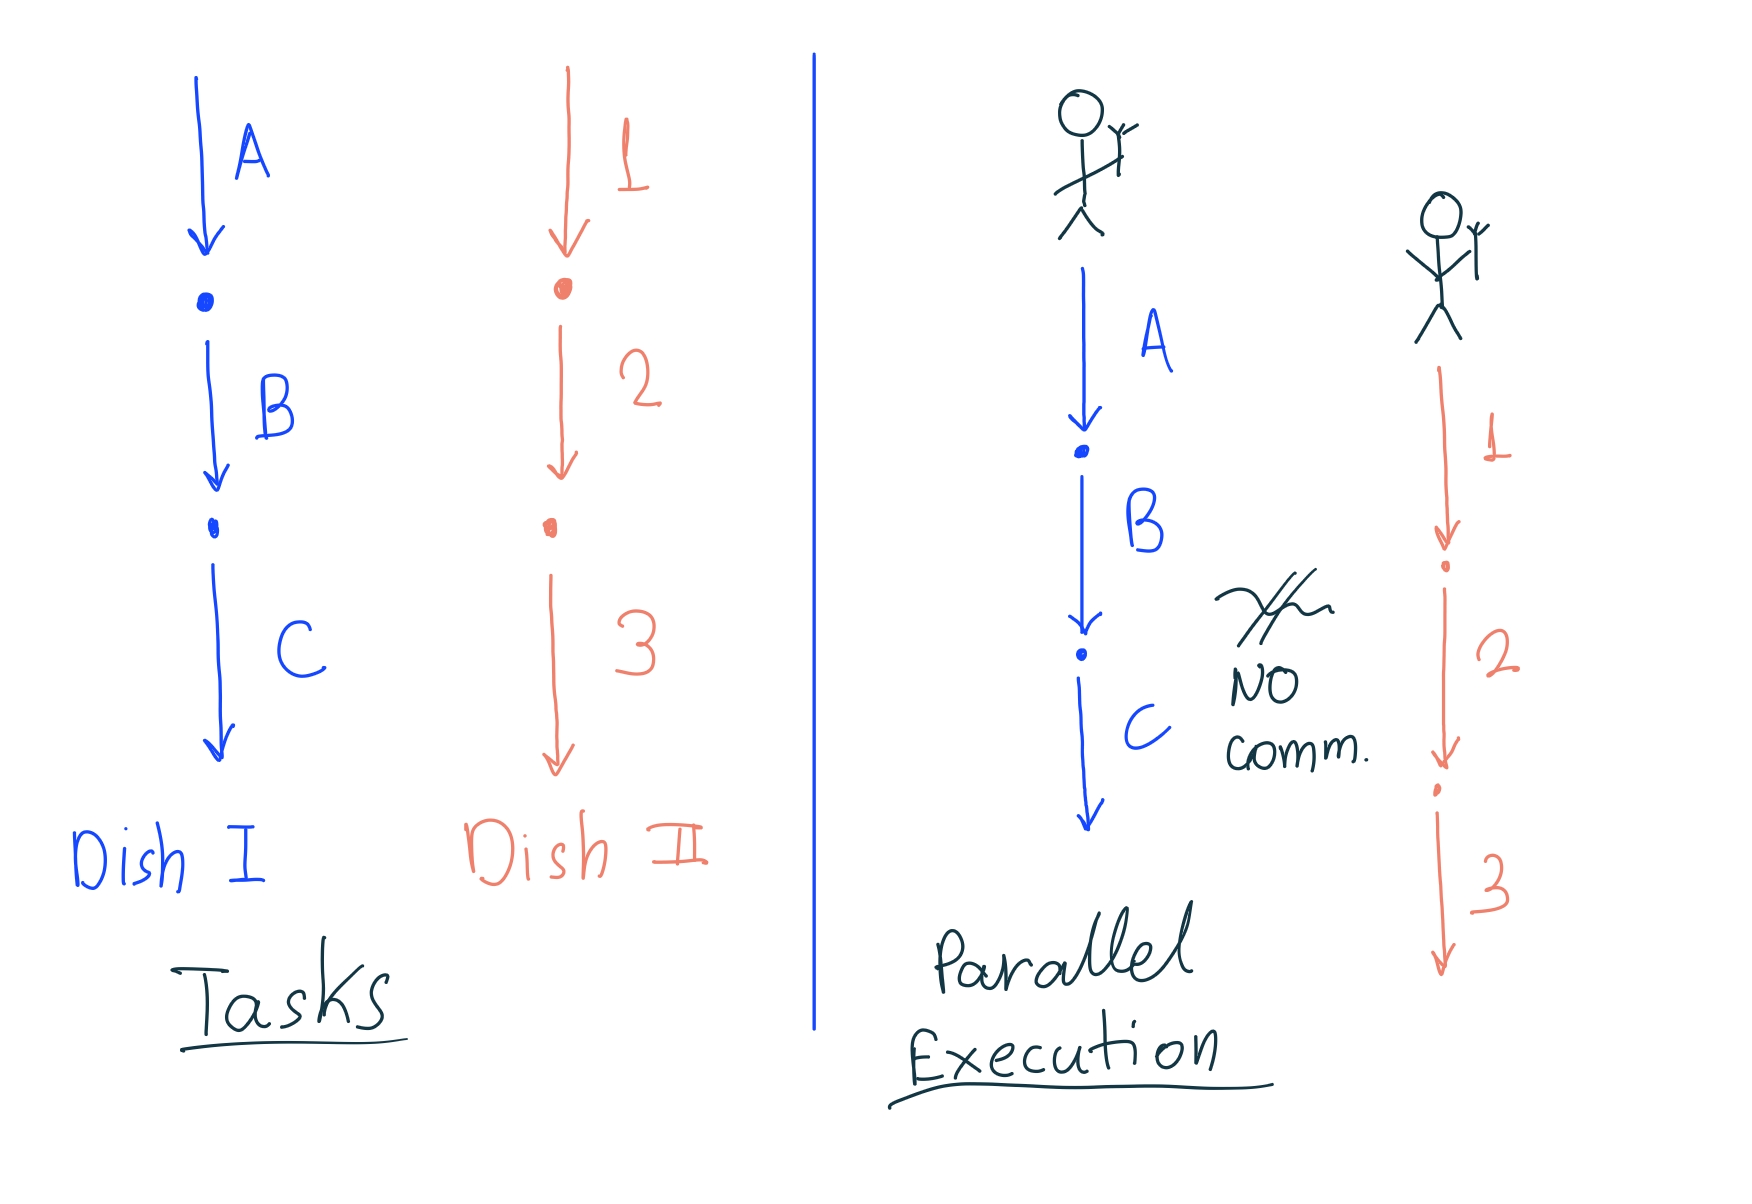 A
B
C
Dish I
1
2
3
Dish II
Tasks
A
B
C
NO
comm.
1
2
3
Parallel
Execution